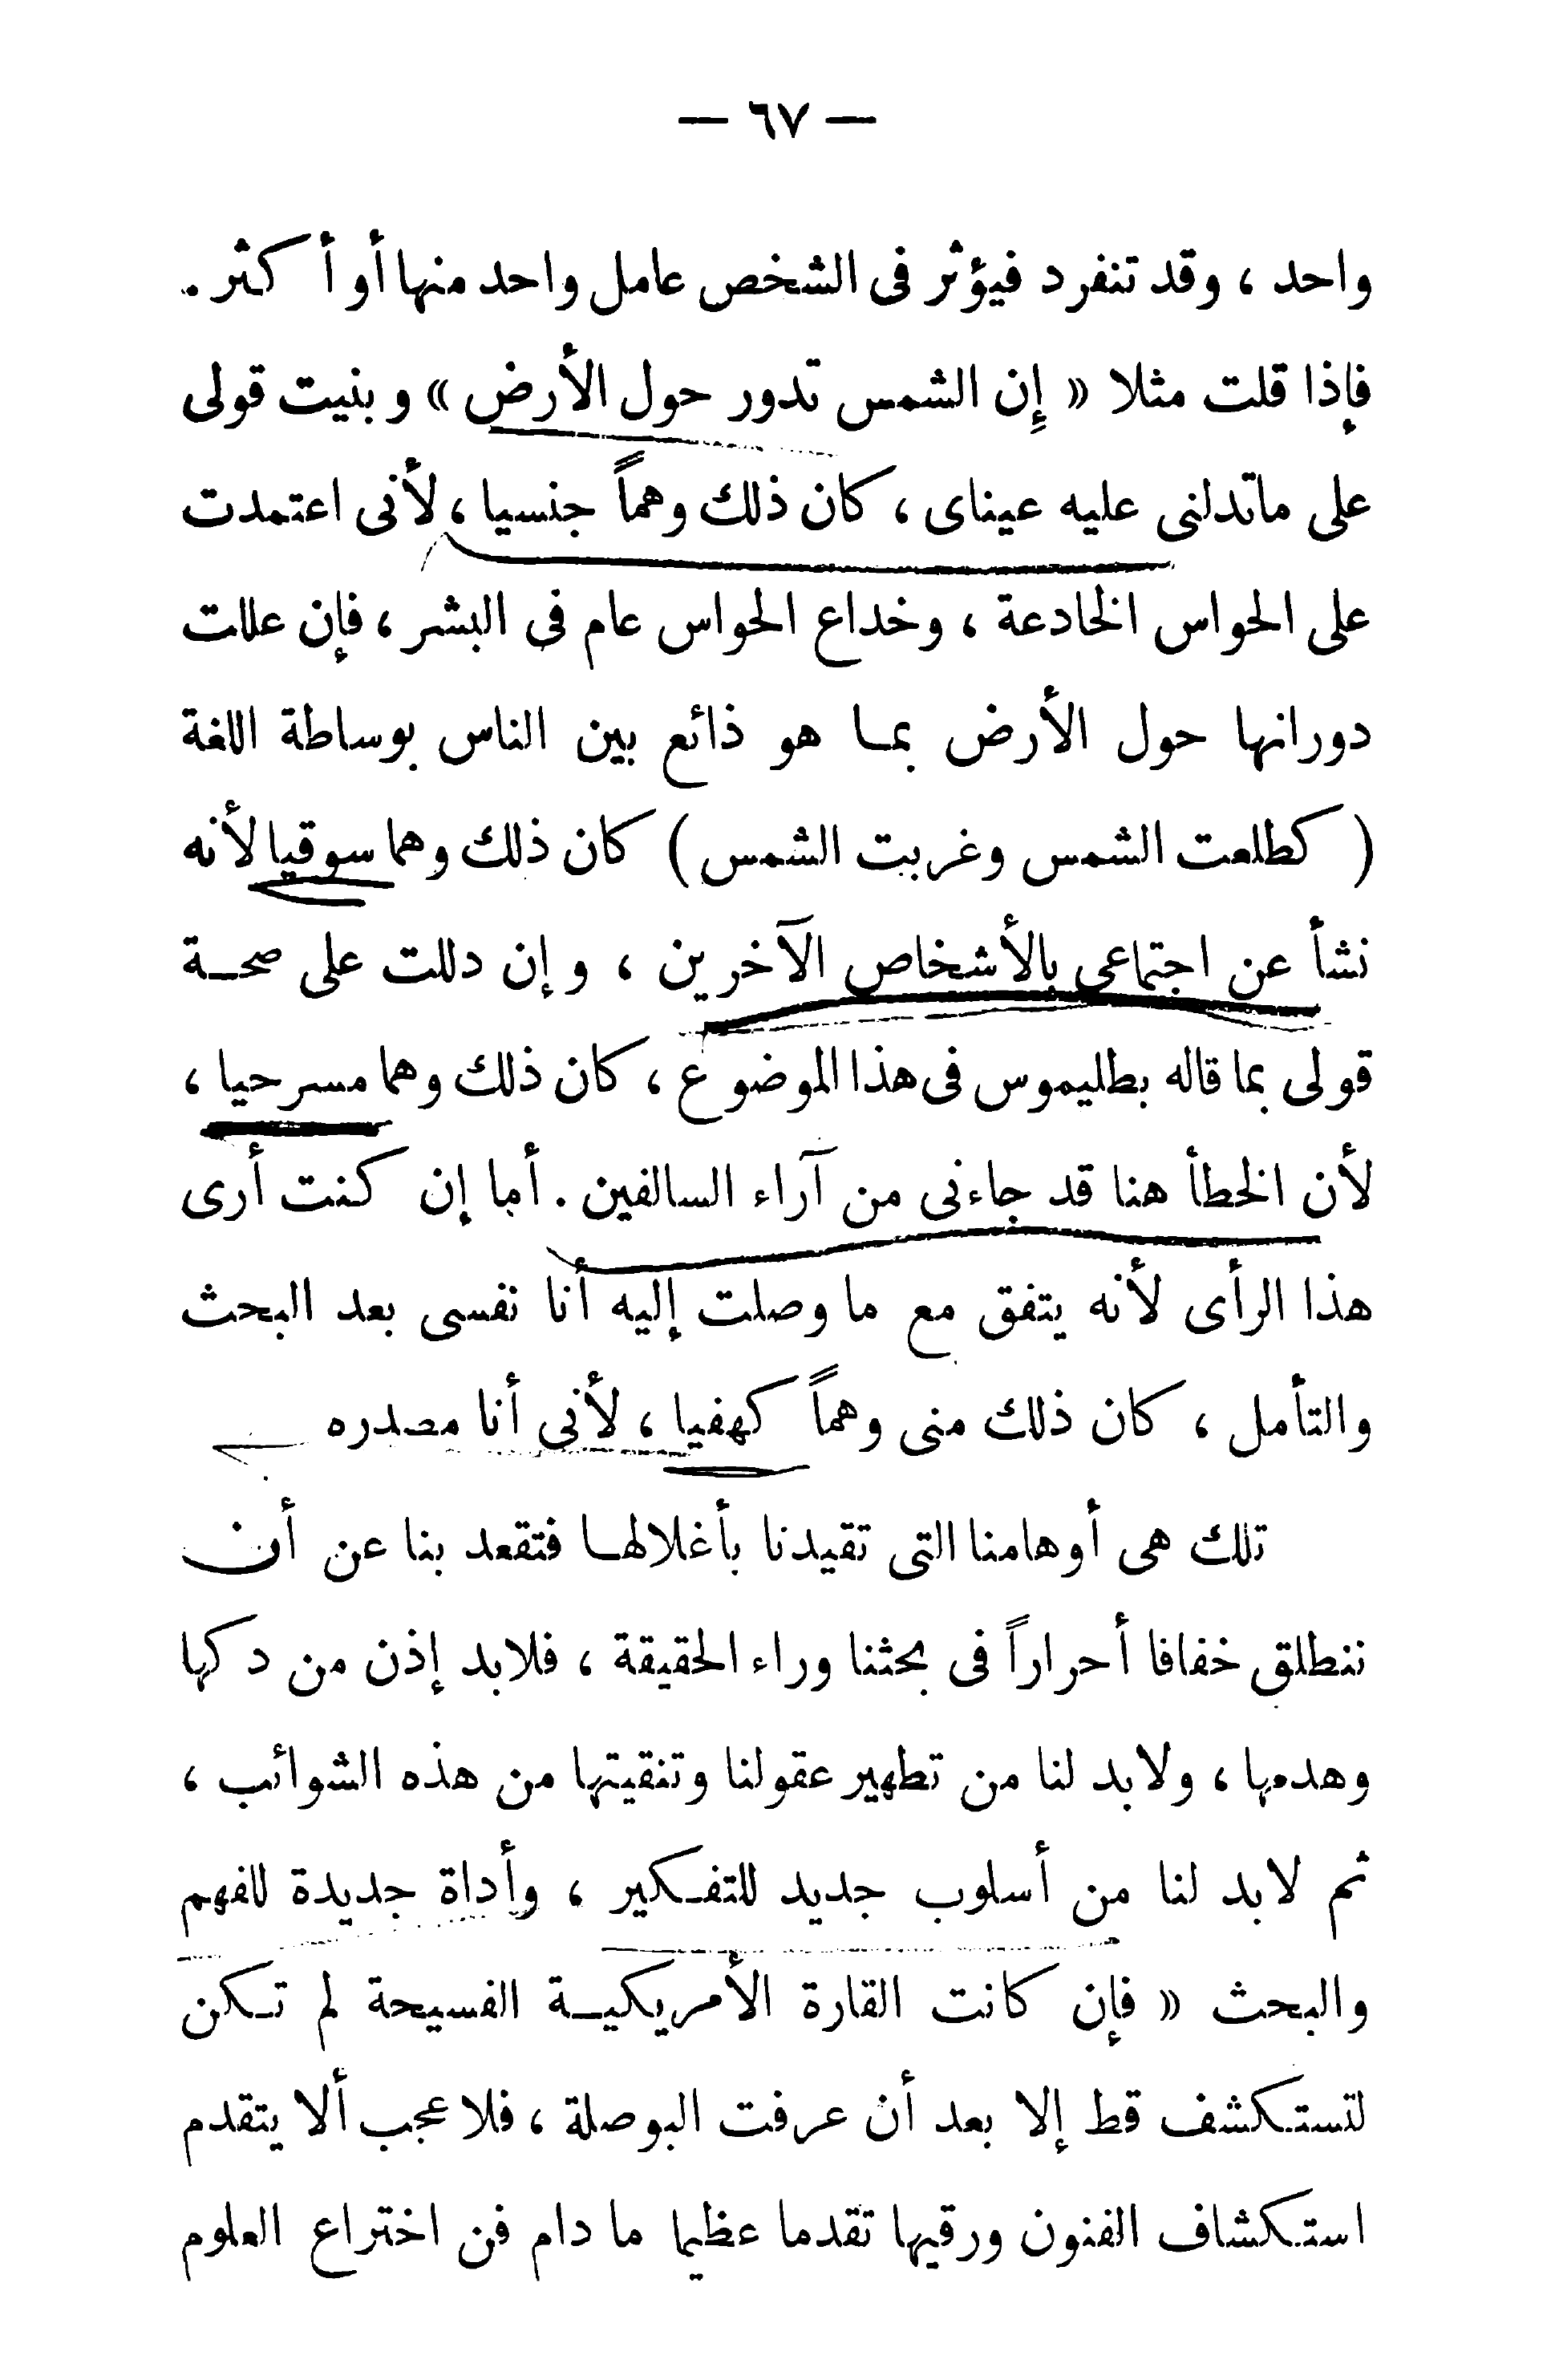 — ٦٧ —
واحد ، وقد تنفرد فيؤثر فى الشخص عامل واحد منها أو أكثر .
فإذا قلت مثلا « إِن الشمس تدور حول الأرض » وبنيت قولى
على ماتدلنى عليه عيناى ، كان ذلك وهماً جنسيا ، لأنى اعتمدت
على الحواس الخادعة ، وخداع الحواس عام فى البشر ، فإن عللت
دورانها حول الأرض بما هو ذائع بين الناس بوساطة اللغة
( كطلعت الشمس وغربت الشمس ) كان ذلك وهما سوقيا لأنه
نشأ عن اجتماعى بالأشخاص الآخرين ، وإن دللت على صحة
قولى بما قاله بطليموس فى هذا الموضوع ، كان ذلك وهما مسرحيا ،
لأن الخطأ هنا قد جاءنى من آراء السالفين . أما إن كنت أرى
هذا الرأى لأنه يتفق مع ما وصلت إليه أنا نفسى بعد البحث
والتأمل ، كان ذلك منى وهماً كهفيا ، لأنى أنا مصدره
تلك هى أوهامنا التى تقيدنا بأغلالها فتقعد بنا عن أن
ننطلق خفافا أحراراً فى بحثنا وراء الحقيقة ، فلابد إذن من دكها
وهدمها ، ولابد لنا من تطهير عقولنا وتنقيتها من هذه الشوائب ،
ثم لابد لنا من أسلوب جديد للتفكير ، وأداة جديدة للفهم
والبحث « فإن كانت القارة الأمريكية الفسيحة لم تكن
لتستكشف قط إلا بعد أن عرفت البوصلة ، فلا عجب ألا يتقدم
استكشاف الفنون ورقيها تقدما عظيما ما دام فن اختراع العلوم